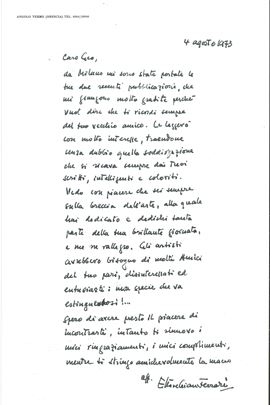 4 agosto 1973
Caro Geo,
da Milano mi sono state portate le
tue due recenti pubblicazioni, che
mi giungono molto gradite perché
vuol dire che ti ricordi sempre
del tuo vecchio amico. Le leggerò
con molto interesse, traendone
senza dubbio quella soddisfazione
che si ricava sempre dai tuoi
scritti, intelligenti e coloriti.
Vedo con piacere che sei sempre
sulla breccia dell'arte, alla quale
hai dedicato e dedichi tanta
parte della tua brillante giornata,
e me ne rallegro. Gli artisti
avrebbero bisogno di molti Amici
del tuo pari, disinteressati ed
entusiasti: una specie che va
estinguendosi!...
Spero di avere presto il piacere di
incontrarti, intanto ti rinnovo i
miei ringraziamenti, i miei complimenti,
mentre ti stringo amichevolmente la mano
aff.